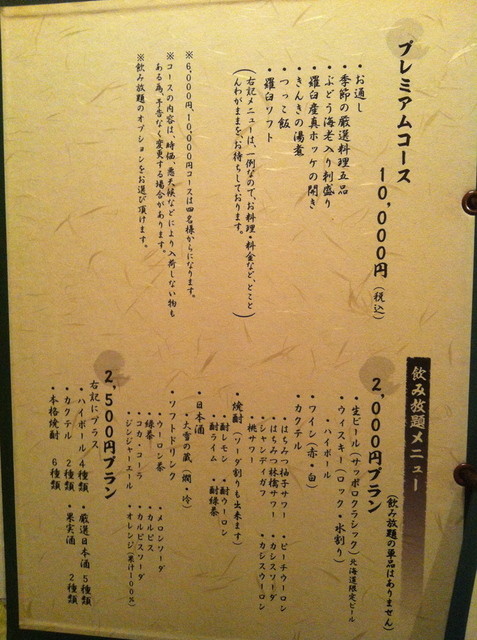 プレミアムコース 10,000円(税込)
・お通し
・季節の厳選料理五品
・ぶどう海老入り刺盛り
・羅臼産真ホッケの開き
・きんきの湯煮
・つっこ飯
・羅臼ソフト
(右記メニューは、一例なので、お料理・料金など、とことんわがままを、お待ちしております。)
※6,000円、10,000円コースは四名様からになります。
※コースの内容は、時価、悪天候などにより入荷しない物も
ある為、予告なく変更する場合があります。
※飲み放題のオプションをお選び頂けます。
飲み放題メニュー
2,000円プラン(飲み放題の単品はありません)
・生ビール(サッポロクラシック)北海道限定ビール
・ウィスキー(ロック・水割り)
・ハイボール
・ワイン(赤・白)
・カクテル
・はちみつ柚子サワー ・ピーチウーロン
・はちみつ林檎サワー ・カシスソーダ
・シャンディガフ ・カシスウーロン
・桃サワー
・焼酎(ソーダ割りも出来ます)
・酎レモン ・酎ウーロン
・酎ライム ・酎緑茶
・日本酒
・大雪の蔵(燗・冷)
・ソフトドリンク
・ウーロン茶 ・メロンソーダ
・緑茶 ・カルピス
・コカ・コーラ ・カルピスソーダ
・ジンジャーエール ・オレンジ(果汁100%)
2,500円プラン
右記にプラス
・ハイボール 4種類 ・厳選日本酒 5種類
・カクテル 2種類 ・果実酒 2種類
・本格焼酎 6種類